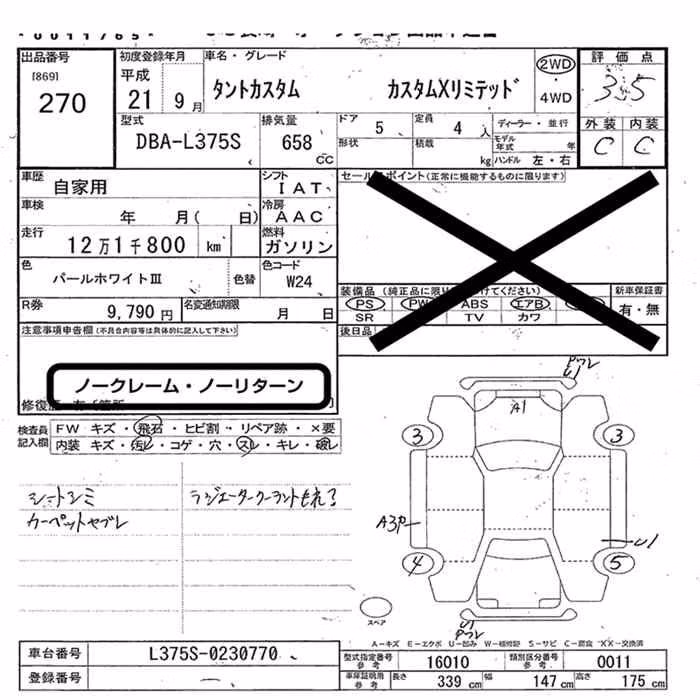 出品番号
[869]
270
初度登録年月
平成
21 9月
車名・グレード
タントカスタム カスタムXリミテッド
2WD
4WD
評価点
3.5
外装 内装
C C
型式
DBA-L375S
排気量
658
cc
ドア
5
定員
4人
形状
積載
kg
ディーラー・並行
モデル年式 年
ハンドル 左・右
車歴
自家用
シフト
IAT
車検
年 月( 日)
冷房
AAC
走行
12万1千800 km
燃料
ガソリン
色
パールホワイトⅢ
色替
色コード
W24
R券
9,790円
名変通知期限
月 日
セールスポイント(正常に機能するものに限ります)
装備品
PS PW ABS エアB
SR TV カワ
新車保証書
有・無
後日品
注意事項申告欄(不具合内容等は具体的に記入して下さい)
ノークレーム・ノーリターン
検査員記入欄
FW キズ・飛石・ヒビ割・リペア跡・×要
内装 キズ・汚レ・コゲ・穴・スレ・キレ・破レ
シートシミ
カーペットヤブレ
ラジエータークーラントもれ
U1
A1
3 3
A3P
U1
4 5
U1
スペア
A-キズ E-エクボ U-凹み W-補修跡 S-サビ C-腐食 XX-交換済
車台番号
L375S-0230770
登録番号
型式指定番号
参考
16010
類別区分番号
参考
0011
車庫証明用
参考
長さ
339 cm
幅
147 cm
高さ
175 cm